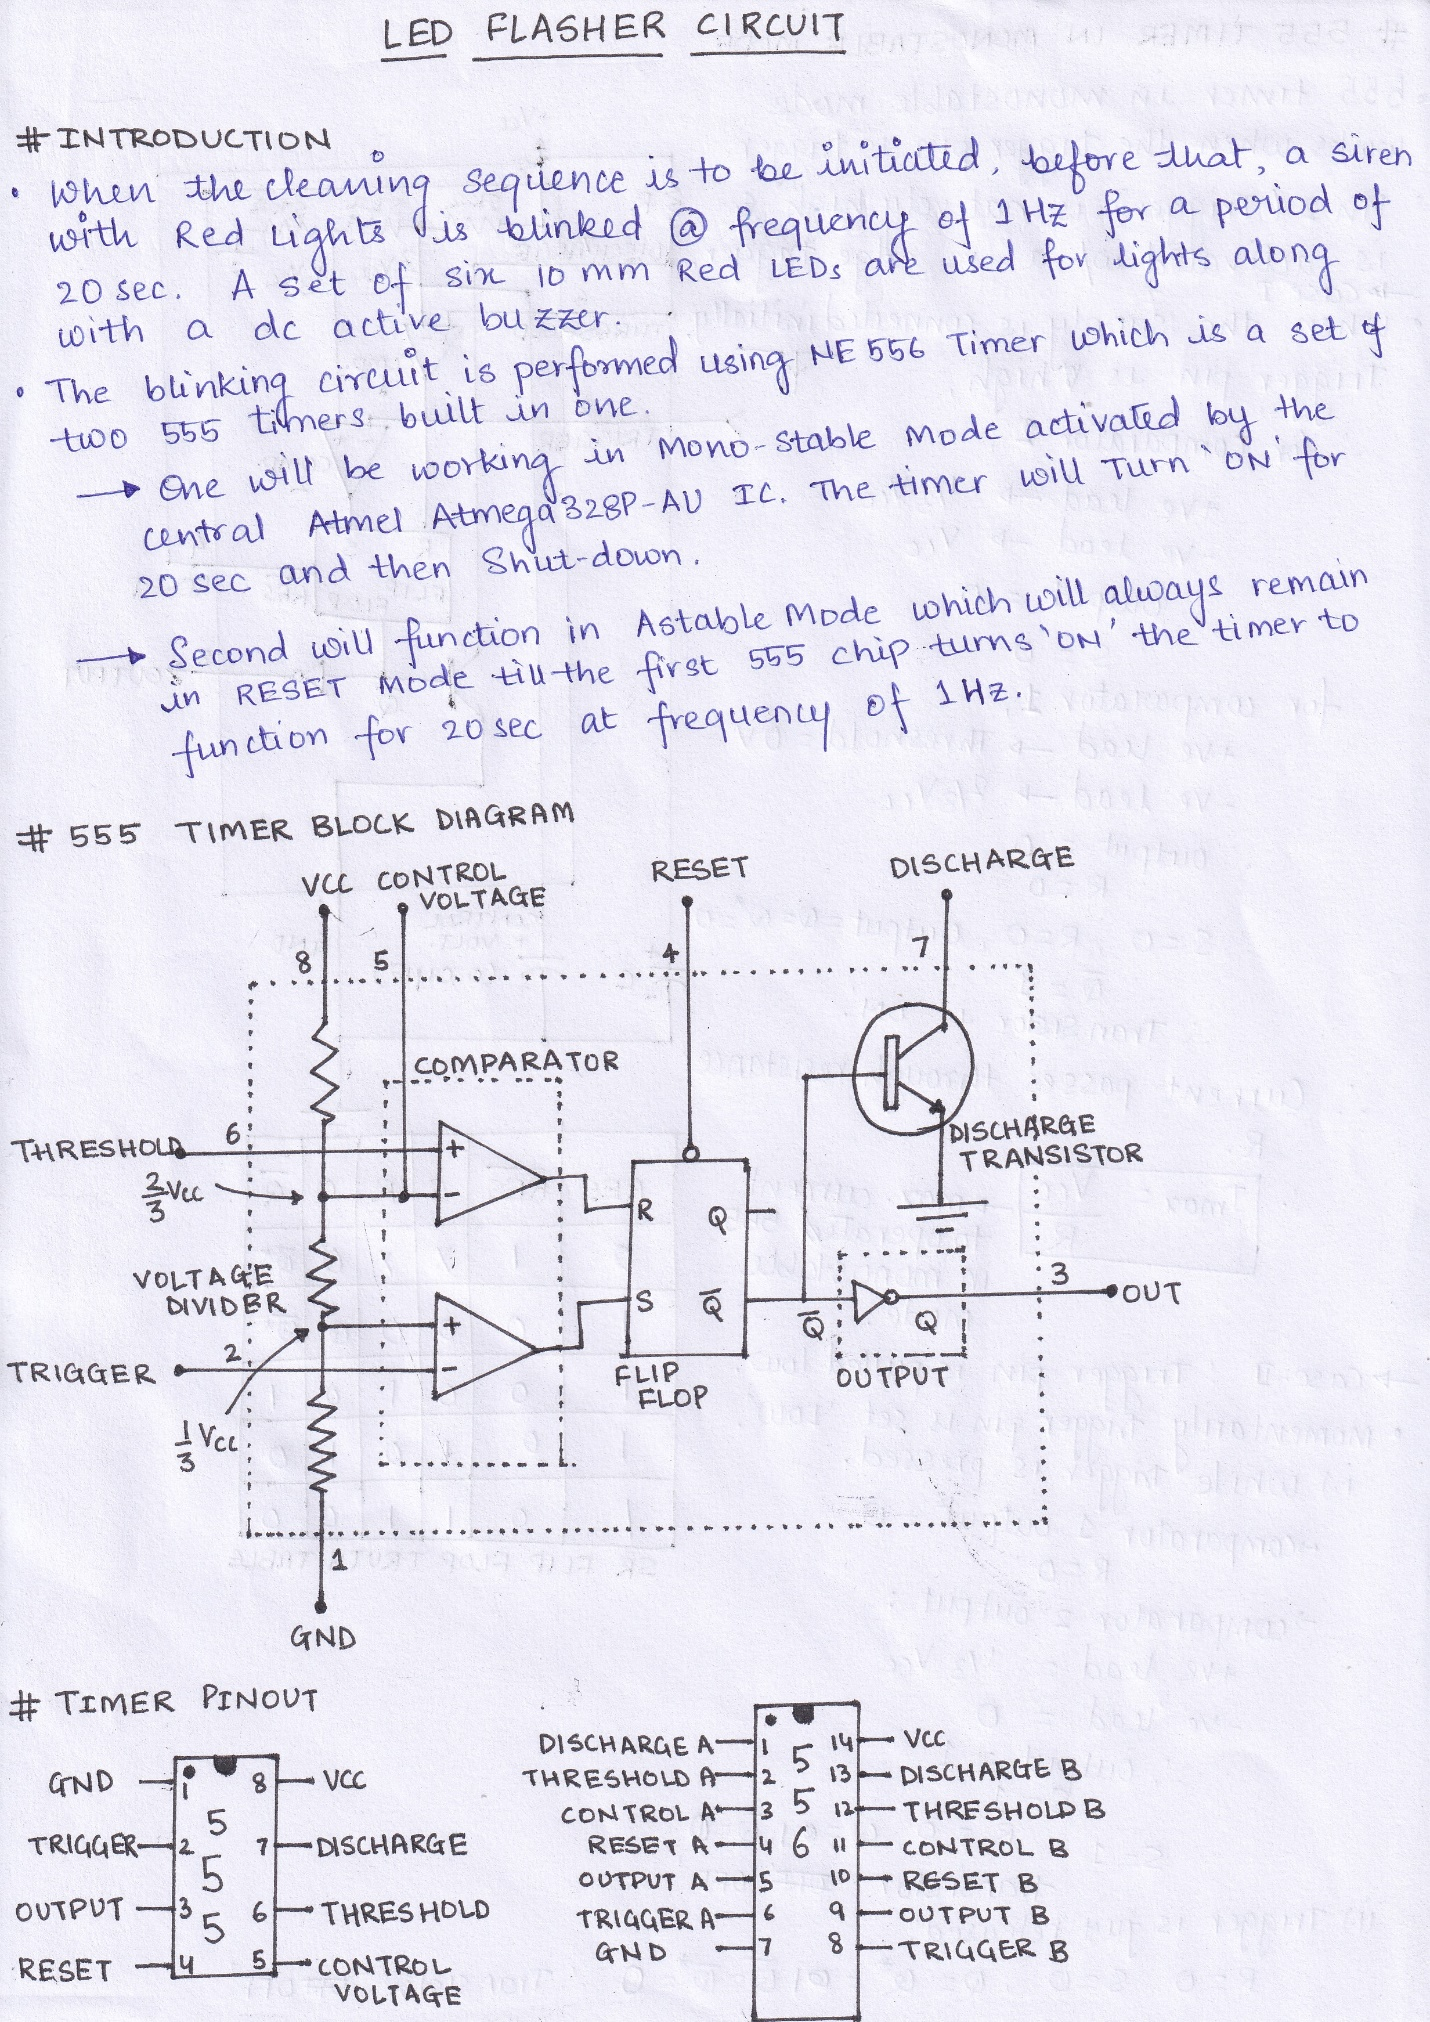 LED FLASHER CIRCUIT
# INTRODUCTION
• When the cleaning sequence is to be initiated, before that, a siren
with Red Lights is blinked @ frequency of 1 Hz for a period of
20 sec. A set of six 10 mm Red LEDs are used for lights along
with a dc active buzzer.
• The blinking circuit is performed using NE 556 Timer which is a set of
two 555 timers built in one.
→ One will be working in Mono-Stable Mode activated by the
central Atmel Atmega328P-AU IC. The timer will Turn 'ON' for
20 sec and then Shut-down.
→ Second will function in Astable Mode which will always remain
in RESET Mode till the first 555 chip turns 'ON' the timer to
function for 20 sec at frequency of 1 Hz.
# 555 TIMER BLOCK DIAGRAM
VCC CONTROL VOLTAGE RESET DISCHARGE
8 5 4 7
COMPARATOR
THRESHOLD 6 +
DISCHARGE
TRANSISTOR
2/3 VCC -
R Q
VOLTAGE
DIVIDER
3 OUT
+ S Q̅ Q̅ Q
TRIGGER 2 -
FLIP
FLOP
OUTPUT
1/3 VCC
1
GND
# TIMER PINOUT
GND 1 8 VCC
TRIGGER 2 7 DISCHARGE
OUTPUT 3 6 THRESHOLD
RESET 4 5 CONTROL
VOLTAGE
5
5
5
DISCHARGE A 1 14 VCC
THRESHOLD A 2 13 DISCHARGE B
CONTROL A 3 12 THRESHOLD B
RESET A 4 11 CONTROL B
OUTPUT A 5 10 RESET B
TRIGGER A 6 9 OUTPUT B
GND 7 8 TRIGGER B
5
5
6